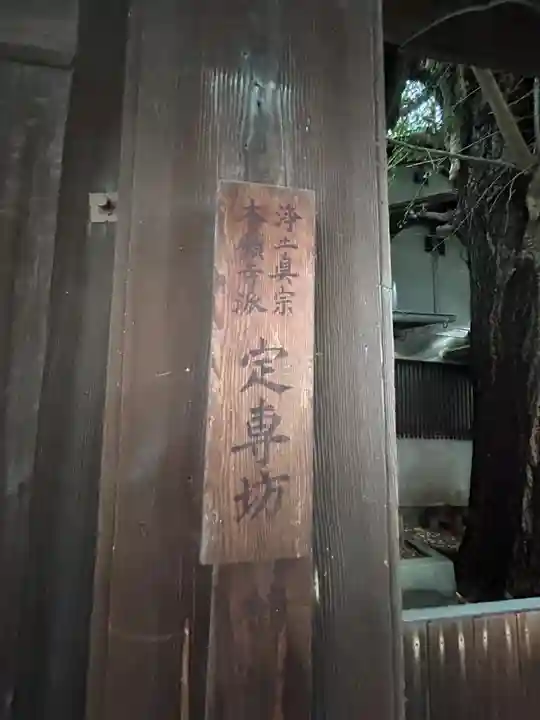 浄土真宗
本願寺派
定専坊